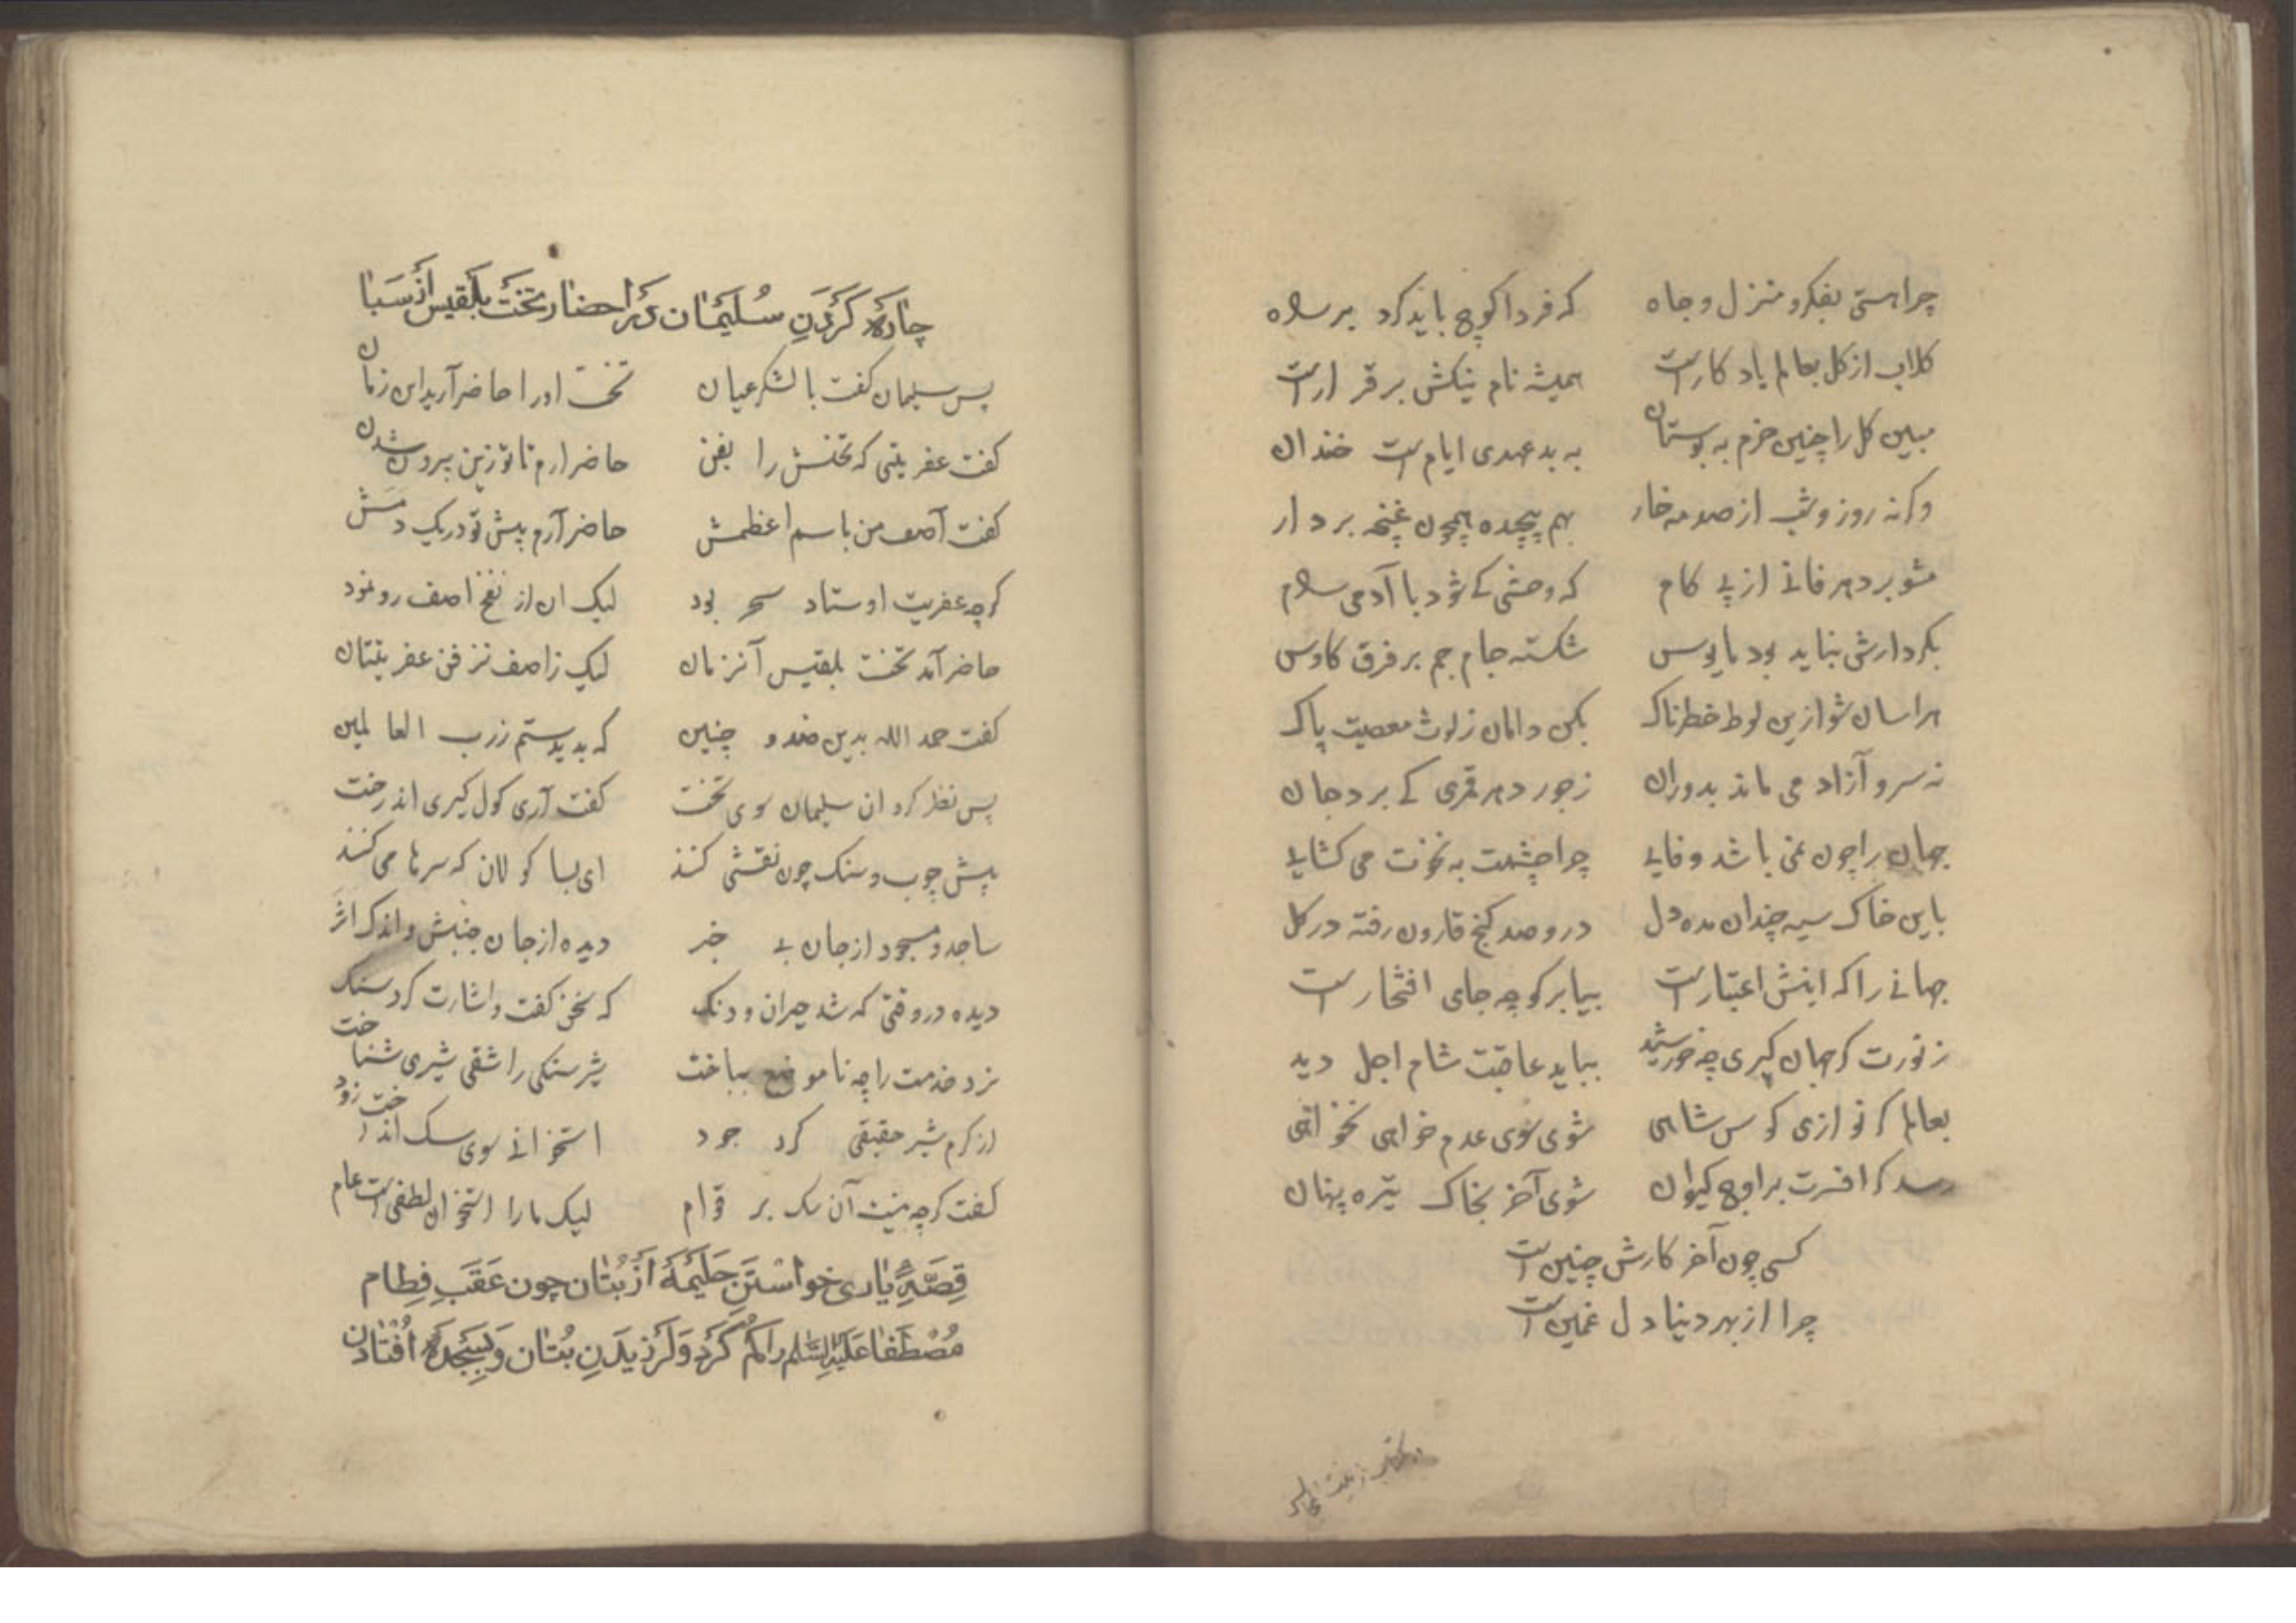 چرا هستی بفکر و منزل و جاه که فردا کوچ باید کرد بر راه
کلاب از کل بعالم یادکارست همیشه نام نیکش برقرارست
مبین کل را چنین خرم به بوستان به بدعهدی ایامست خندان
وکرنه روز و شب از صدمه خار بهم پیچیده همچون غنچه بردار
مشو بر دهر فانے از پے کام که وحشی کے شود با آدمی رام
بکردارش نباید بود مایوس شکسته جام جم بر فرق کاوس
هراسان شو ازین لوط خطرناک بکن دامان ز لوث معصیت پاک
نه سرو آزاد می ماند بدوران ز جور دهر قمری کے برد جان
جهان را چون نمی باشد وفایے چرا چشمت به نخوت می کشایے
باین خاک سیه چندان مده دل درو صد کنج قارون رفته در کل
جهانے را که اینش اعتبارست بیا بر کو چه جای افتخارست
ز نورت کر جهان کیری چه خورشید بباید عاقبت شام اجل دید
بعالم کر نوازی کوس شاهی شوی سوی عدم خواهی نخواهی
رسد کر افسرت بر اوج کیوان شوی آخر بخاک تیره پنهان
کسی چون آخر کارش چنین است
چرا از بهر دنیا دل غمین است
چاره کردن سلیمان در احضار تخت بلقیس از سبا
پس سلیمان کفت با لشکر عیان تخت او را حاضر آرید این زمان
کفت عفریتی که تختش را بفن حاضر ارم تا تو زین بیرون شدن
کفت آصف من باسم اعظمش حاضر آرم پیش تو در یک دمش
کرچه عفریت اوستاد سحر بود لیک ان از نفخ اصف رو نمود
حاضر آمد تخت بلقیس آنزمان لیک ز اصف نز فن عفریتان
کفت حمد الله بدین صد و چنین که بدیدستم ز رب العالمین
پس نظر کرد ان سلیمان سوی تخت کفت آری کول کیری اندرخت
پیش چوب و سنک چون نقشی کنند ای بسا کولان که سرها می کنند
ساجد و مسجود از جان بے خبر دیده از جان جنبش و اندک اثر
دیده در وقتی که شد حیران و دنک که سخن کفت و اشارت کرد سنک
نرد خدمت را چه ناموضع بباخت شیر سنکی را شقی شیری شناخت
از کرم شیر حقیقی کرد جود استخوانے سوی سک انداخت زود
کفت کرچه نیست آن سک بر قوام لیک ما را استخوان لطفیست عام
قِصَّهِٔ یاری خواستَنِ حَلیمَهَ اَزْ بُتان چون عَقَبِ فِطام
مُصْطَفا عَلَیْهِ السَّلم را کُم کَرْد وَ لَرْزیدَنِ بُتان وَ بِسِجْدَه اُفْتادن